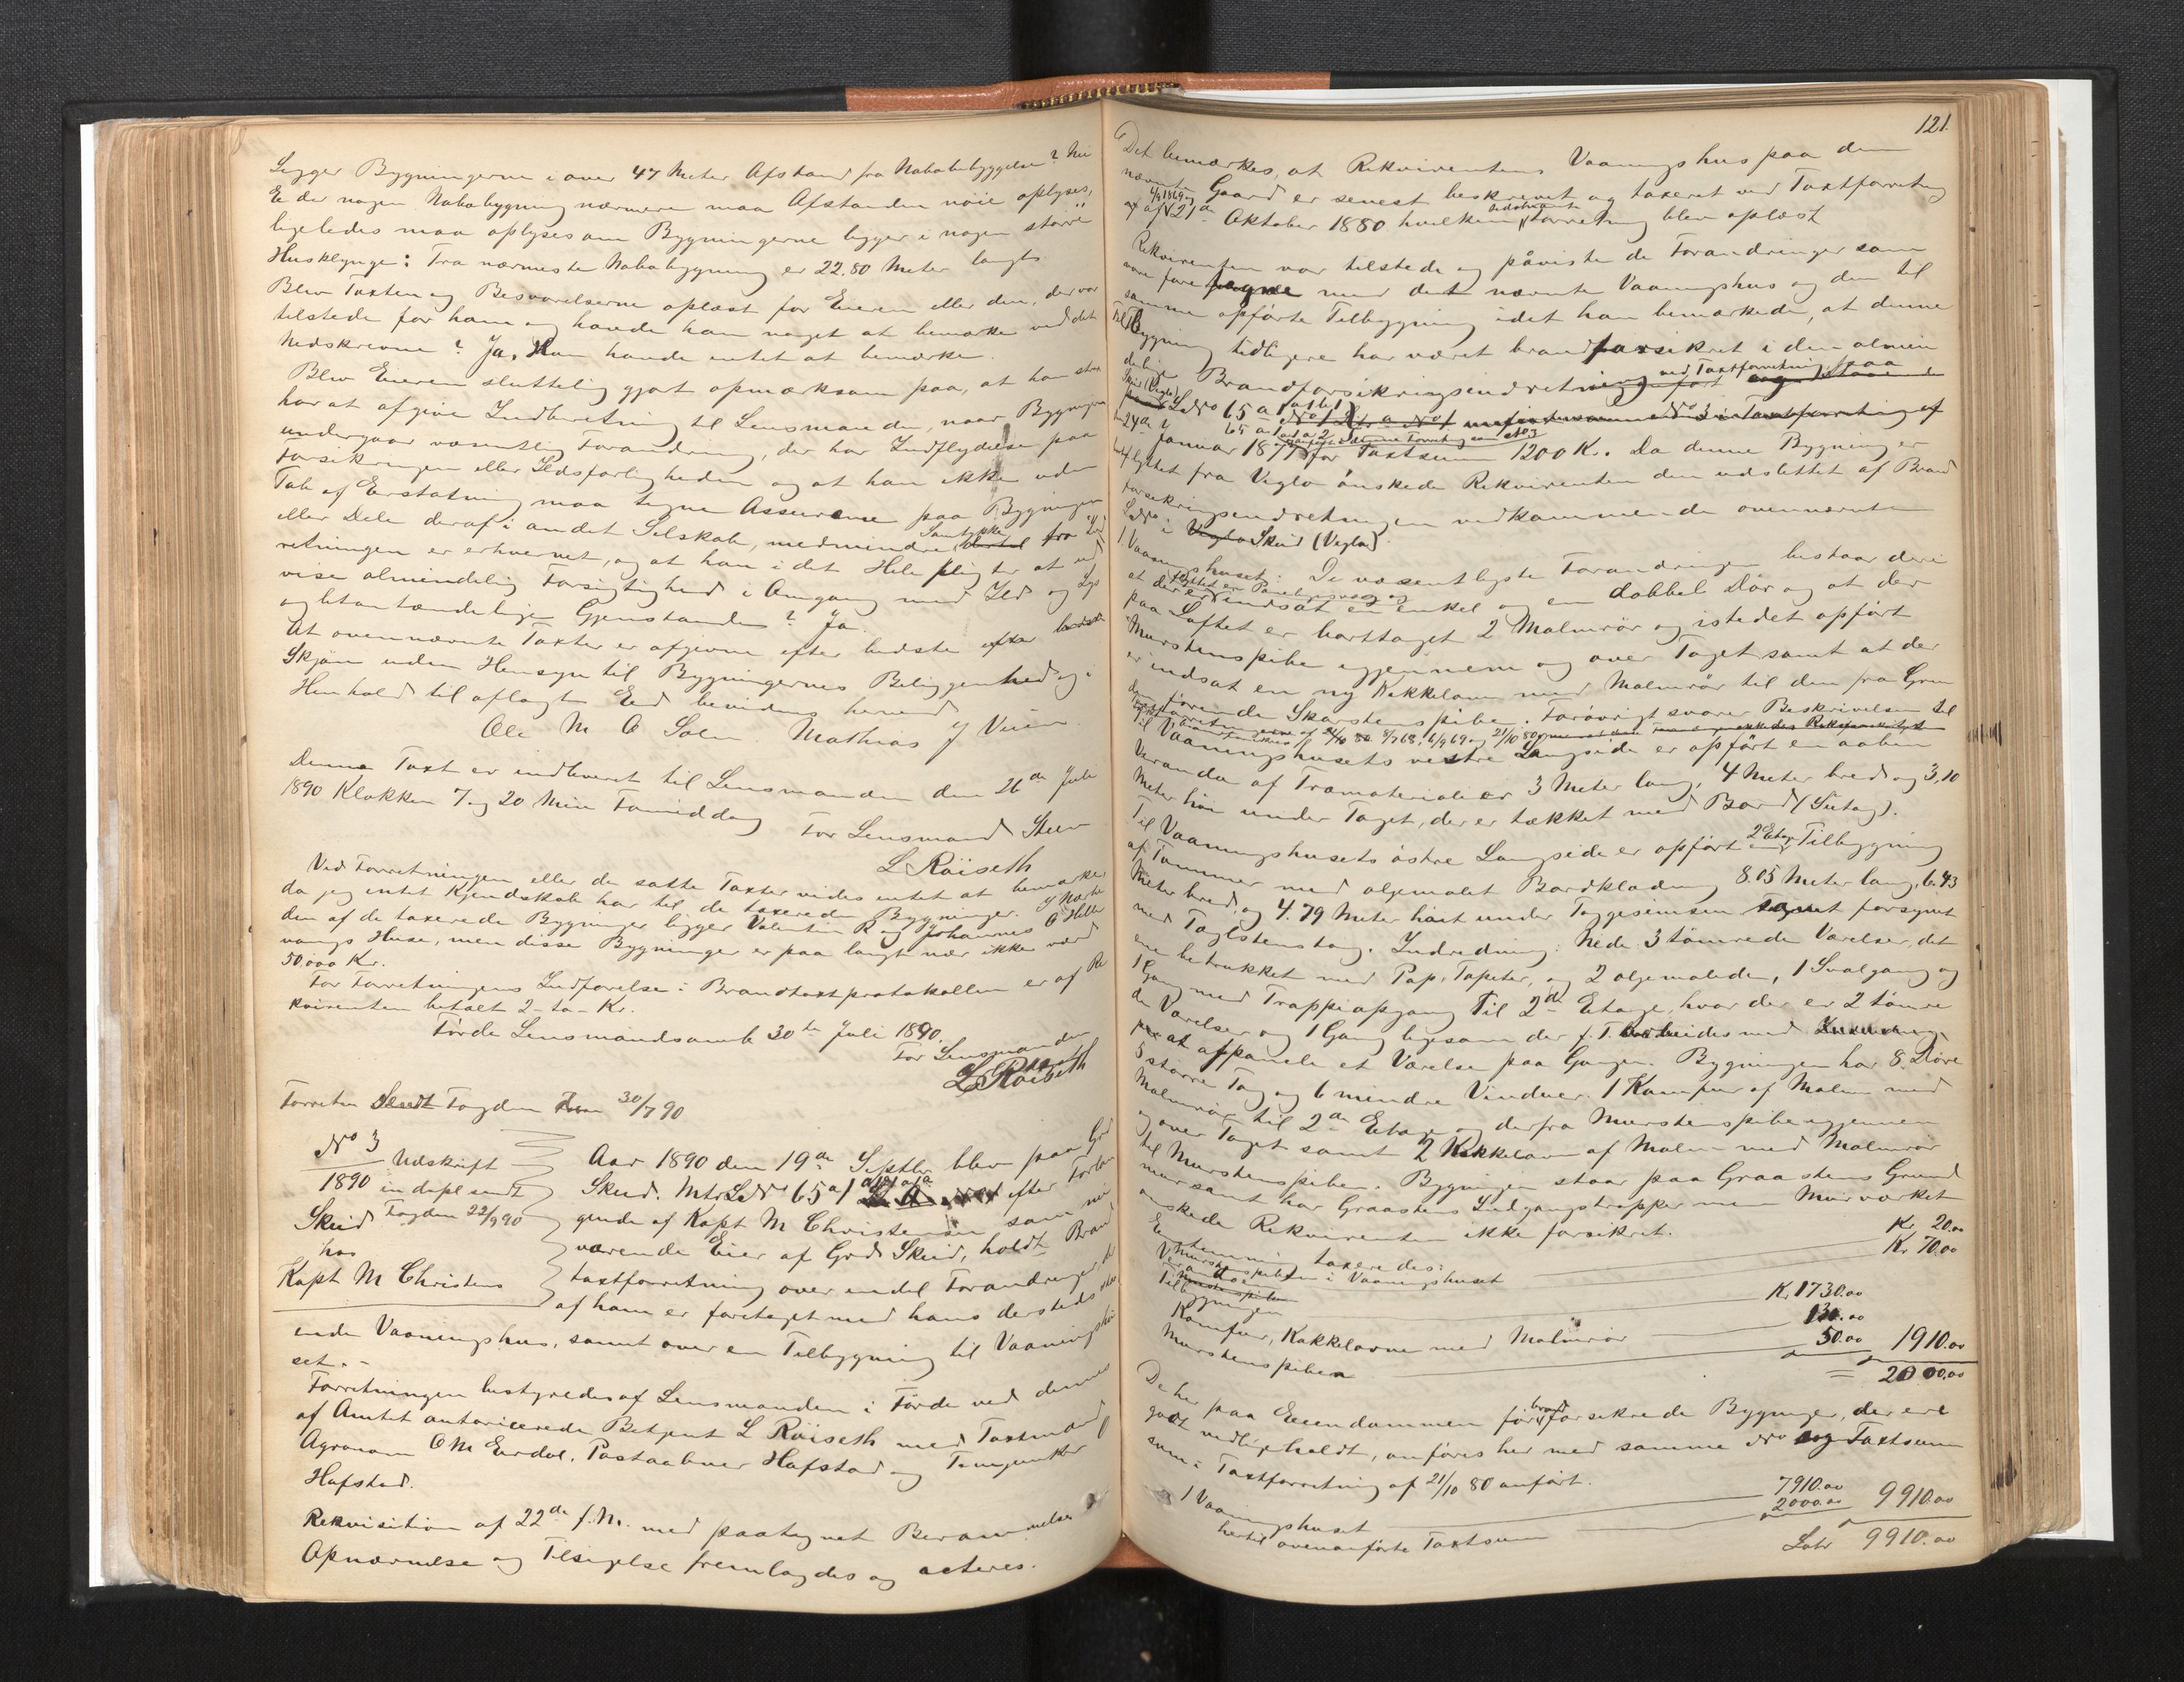 Ligger Bygningerne i over 47 Meter Afstand fra Nabobebyggelse? Nei
Er der nogen Nabobygning nærmere maa Afstanden nöie oplyses,
ligeledes maa oplyses om Bygningerne ligger i nogen större
Husklynge: Fra nærmeste Nabobygning er 22.80 Meter langt
Blev Taxten og Besvarelserne oplæst for Eieren eller den, der var
tilstede for ham og havde han noget at bemærke ved det
Nedskrevne? Ja, Han havde intet at bemærke.
Blev Eieren sluttelig gjort opmærksom paa, at han strax
har at afgive Indberetning til Lensmanden, naar Bygningen
undergaar væsentlig Forandring, der har Indflydelse paa
Forsikringen eller Ildsfarligheden og at han ikke uden
Tab af Erstatning maa tegne Assurance paa Bygningen
eller Dele deraf i andet Selskab, medmindre Samtykke fra Ind
retningen er erhvervet, og at han i det Hele pligter at ud
vise almindelig Forsigtighed i Omgang med Ild og Lys
og letantændelige Gjenstande? Ja.
At ovennævnte Taxter er afgivne efter bedste
Skjön uden Hensyn til Bygningernes Beliggenhed og i
Henhold til aflagt Ed bevidnes herved
Ole M O Solem Mathias J Vieen
Denne Taxt er indleveret til Lensmanden den 26de Juli
1890 Klokken 7 og 20 Min Formiddag
For Lensmand Steen
L Röiseth
Ved Forretningen eller de satte Taxter vides intet at bemærke,
da jeg intet Kjendskab har til de taxerede Bygninger. I Nærhe
den af de taxerede Bygninger ligger Valentin R og Johannes O Helle
vangs Huse, men disse Bygninger er paa langt nær ikke værd
50.000 Kr.
For Forretningens Indförelse i Brandtaxtprotokollen er af Re
kvirenten betalt 2 - to - Kr.
Förde Lensmandsomb 30te Juli 1890.
For Lensmanden
L Röiseth
Forretn Sendt Fogden 30/7 90
No 3
1890
Udskrift
in dupl sendt
Fogden 22/9 90
Skeid
hos
Kapt M Christens
Aar 1890 den 19de Septbr blev paa Grd
Skeid. Mtr LNo 65 a1 efter Forlan
gende af Kapt M Christensen som nu
værende Eier af Grd Skeid, holdt Brand
taxtforretning over endel Forandringer, der
af ham er foretaget med hans dersteds
ende Vaaningshus, samt over en Tilbygning til Vaaningshu
set. -
Forretningen bestyredes af Lensmanden i Förde ved dennes
af Amtet autoriserede Betjent L Röiseth med Taxtmænd
Agronom O M Eirdal, Postaabner Hafstad og
Hafstad.
Rekvisition af 22de f.M. med paategnet Berammelse
Opnævnelse og Tilsigelse fremlagdes og acteres.
121.
Det bemærkes, at Rekvirentens Vaaningshus paa den
nævnte Gaard er senest beskrevet og taxeret ved Taxtforretning
af 6/9 1869 og af 21de Oktober 1880 hvilken sidstnævnte Forretning blev oplæst
Rekvirenten var tilstede og påviste de Forandringer som
vare foregaaet med det nævnte Vaaningshus og den til
samme opförte Tilbygning idet han bemærkede, at denne
Tilbygning tidligere har været brandforsikret i den almin
delige Brandforsikringsindretning ved Taxtforretning paa
Skeid (Vegla) LNo 65 a1
24de Januar 1877 for Taxtsum 1200 Kr. Da denne Bygning er
flyttet fra Vegla önskede Rekvirenten den udslettet af Brand
forsikringsindretningen vedkommende ovennævnte
LNo i Skeid (Vegla).
1 Vaaningshuset: De væsentligste Forandringer bestaar deri
at der er indsat en enkel og en dobbel Dör og at der
paa Loftet er borttaget 2 Malmrör og istedet opfört
Murstenspibe igjennem og over Taget samt at der
er indsat en ny Kakkelovn med Malmrör til den fra Grun
den förende Skorstenspibe. Forövrigt svarer Beskrivelsen til
Taxtforretn 8/7 68, 6/9 69 og 21/10 80
Til Vaaningshusets vestre Langside er opfört en aaben
Veranda af Træmaterialier 3 Meter lang, 4 Meter bred og 3,10
Meter höi under Taget, der er tækket med Bord (Sutag).
Til Vaaningshusets östre Langside er opfört 2 Etages Tilbygning
af Tömmer med oljemalet Bordklædning 8.05 Meter lang, 6.43
Meter bred, og 4.79 Meter höit under Taggesimsen samt forsynet
med Taglstenstag. Indredning: Nede 3 tömrede Værelser, det
ene betrukket med Pap, Tapeter, og 2 oljemalede, 1 Svalgang og
1 Gang med Trappeopgang Til 2den Etage, hvor der er 2 tömre
de Værelser og 1 Gang ligesom der f. T. arbeides med
at afpanele et Værelse paa Gangen. Bygningen har 8 Döre
5 större Fag og 6 mindre Vinduer. 1 Komfur af Malm med
Malmrör til 2den Etage og derfra Murstenspibe igjennem
og over Taget samt 2 Kakkelovn af Malm med Malmrör
til Murstenspiben. Bygningen staar paa Graastens Grund
mur samt har Graastens Indgangstrapper men Murværket
önskede Rekvirenten ikke forsikret.
Enstemmig taxeredes:
Murstenspiben i Vaaningshuset Kr. 20.00
Verandaen Kr. 70.00
Tilbygningen Kr 1730.00
Komfur, Kakkelovne med Malmrör 130.00
Murstenspiben 50.00 1910.00
= 2000.00
De her paa Eiendommen för brandforsikrede Bygninger, der ere
godt vedligeholdt, anföres her med samme No og Taxtsum
som i Taxtforretning af 21/10 80 anfört.
1 Vaaningshuset 7910.00
hertil ovenanförte Taxtsum 2000.00 9910.00
Latr 9910.00